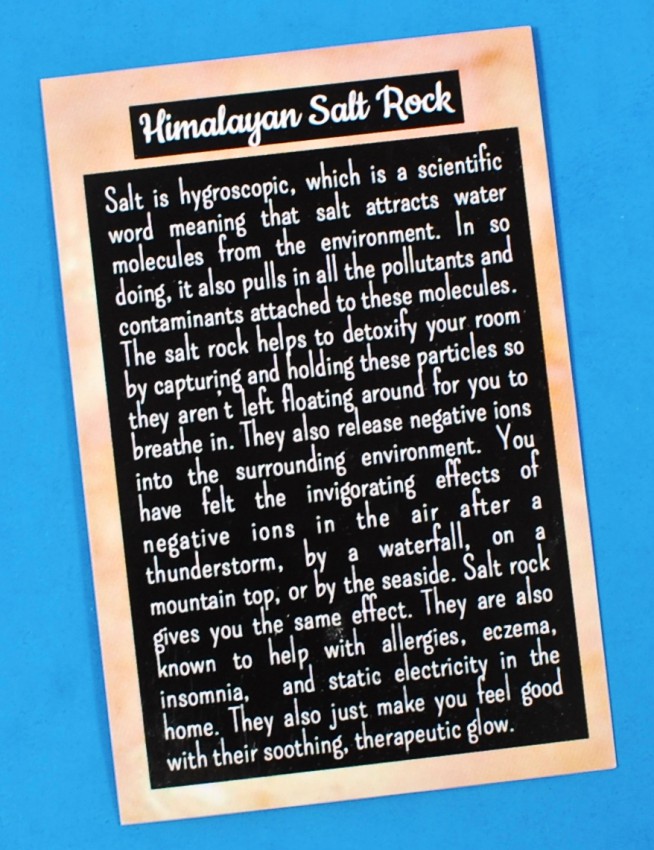 Himalayan Salt Rock
Salt is hygroscopic, which is a scientific
word meaning that salt attracts water
molecules from the environment. In so
doing, it also pulls in all the pollutants and
contaminants attached to these molecules.
The salt rock helps to detoxify your room
by capturing and holding these particles so
they aren't left floating around for you to
breathe in. They also release negative ions
into the surrounding environment. You
have felt the invigorating effects of
negative ions in the air after a
thunderstorm, by a waterfall, on a
mountain top, or by the seaside. Salt rock
gives you the same effect. They are also
known to help with allergies, eczema,
insomnia, and static electricity in the
home. They also just make you feel good
with their soothing, therapeutic glow.